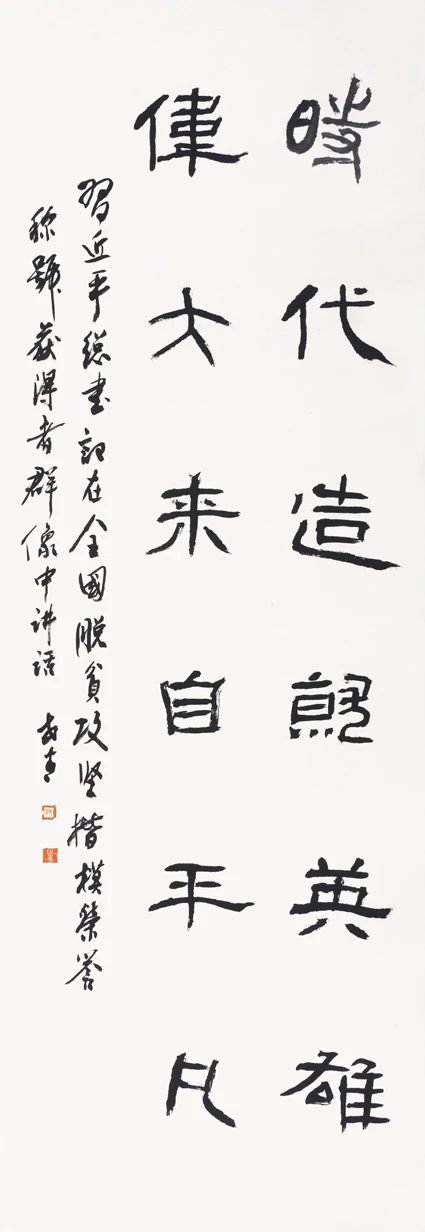 時代造就英雄
偉大来自平凡
習近平總書記在全國脱貧攻堅楷模榮誉
称號獲得者群像中讲话